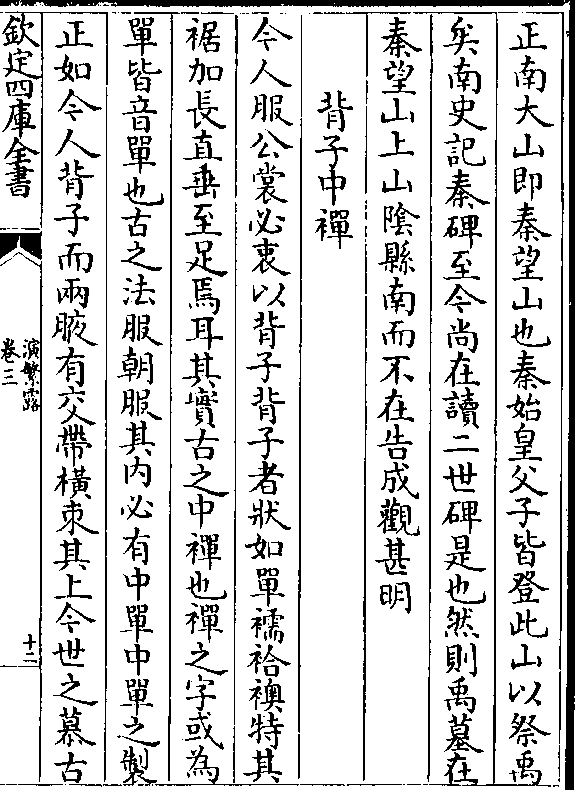 正南大山即秦望山也秦始皇父子皆登此山以祭禹
矣南史記秦碑至今尚在讀二世碑是也然則禹墓在
秦望山上山陰縣南而不在告成觀甚明
背子中襌
今人服公裳必衷以背子背子者狀如單襦袷襖特其
裾加長直垂至足焉耳其實古之中襌也襌之字或為
單皆音單也古之法服朝服其内必有中單中單之製
正如今人背子而兩腋有交帶横束其上今世之慕古
欽定四庫全書
演繁露
卷三
十二